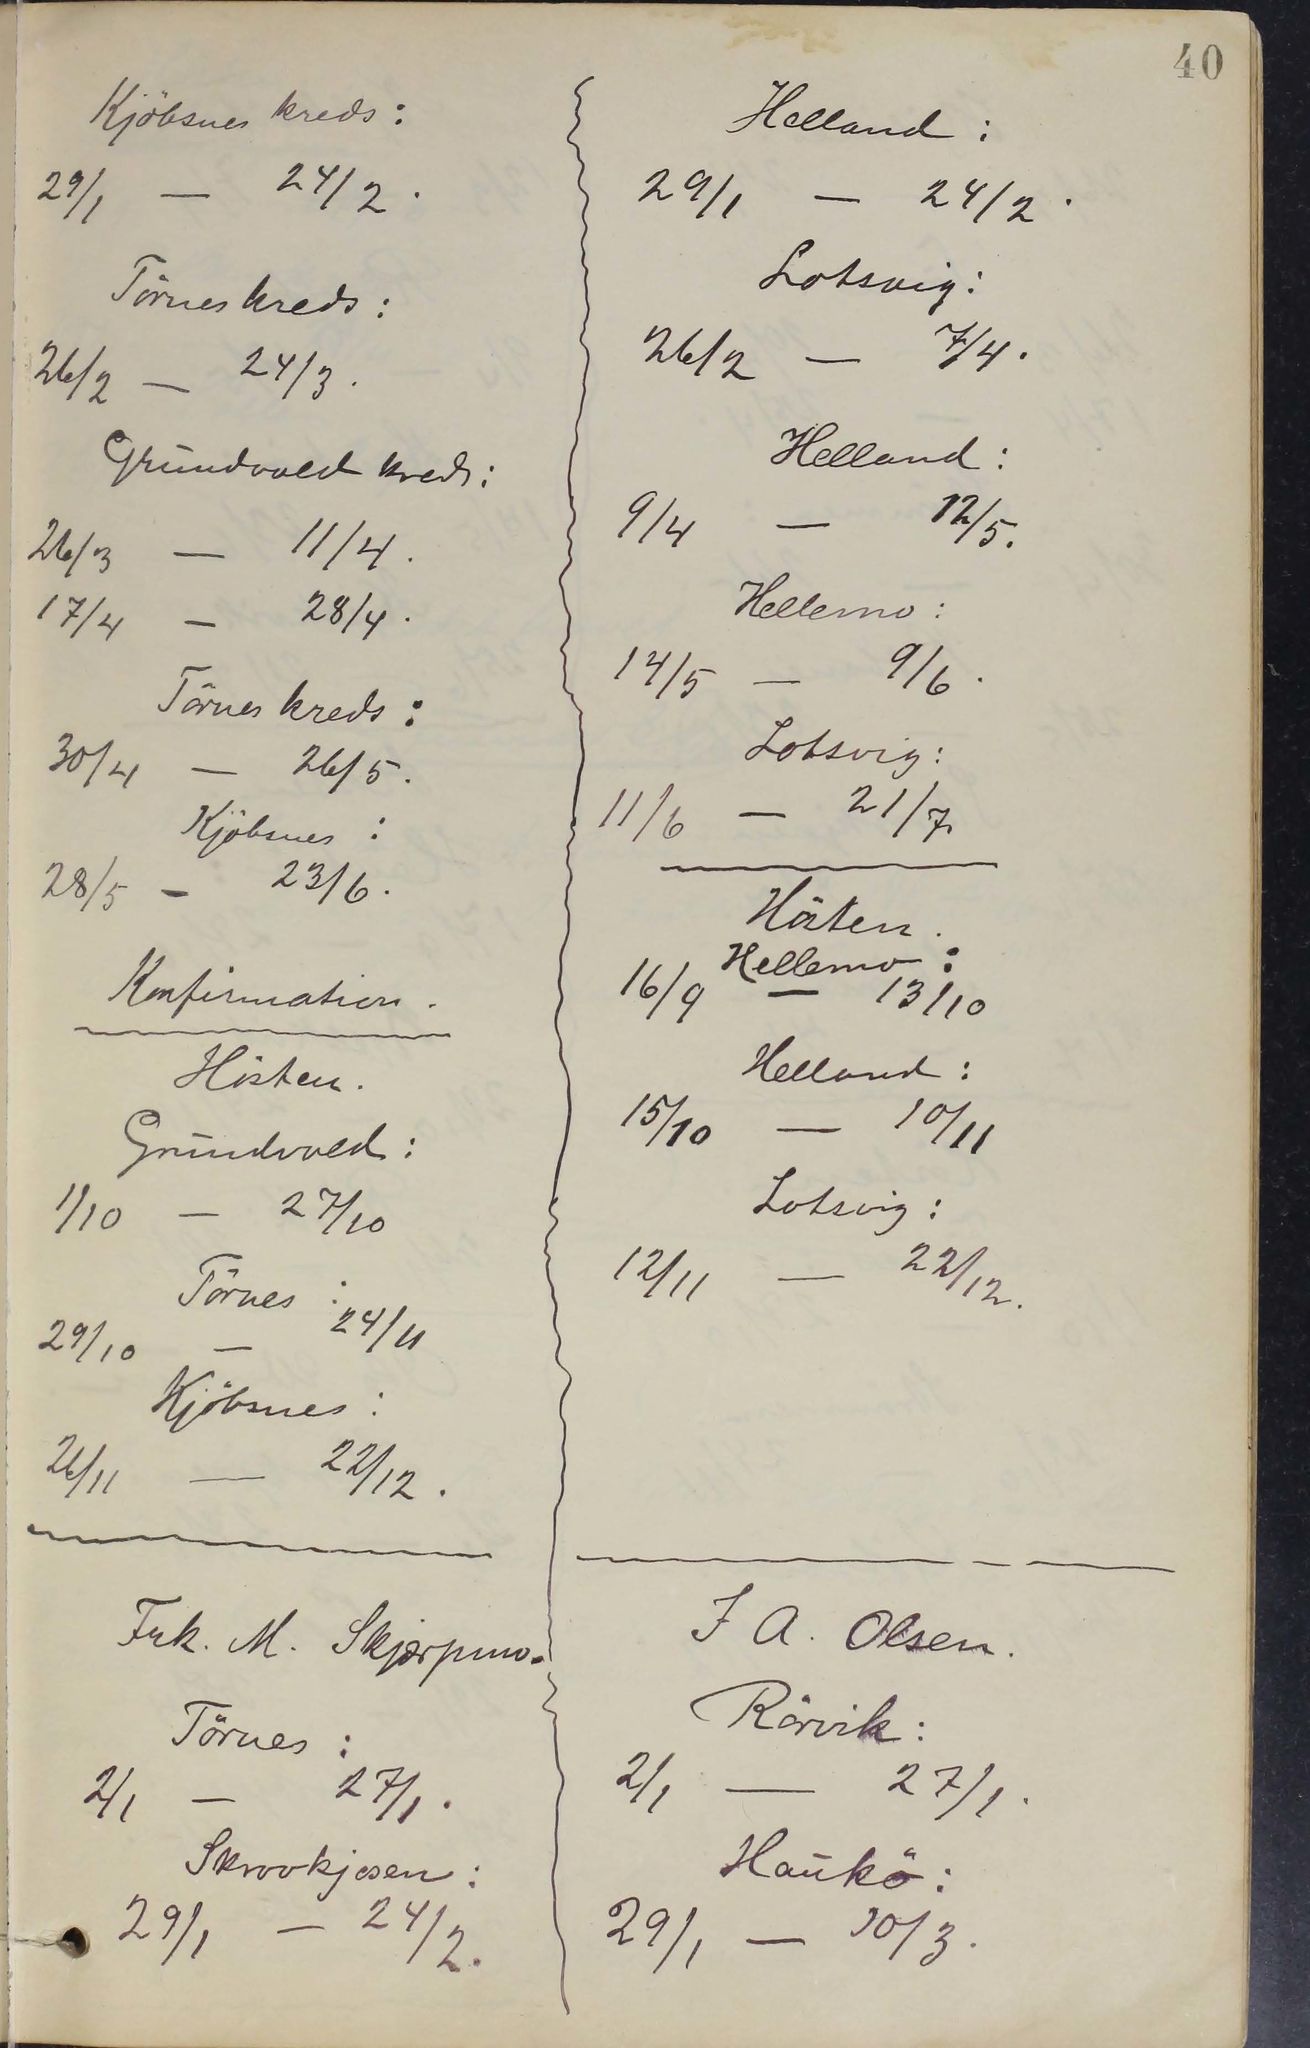 40
Kjöbsnes kreds:
29/1 — 24/2.
Törnes kreds:
26/2 — 24/3.
Grundvold kreds:
26/3 — 11/4.
17/4 — 28/4.
Törnes kreds:
30/4 — 26/5.
Kjöbsnes:
28/5 — 23/6.
Konfirmation.
Hösten.
Grundvold:
1/10 — 27/10
Törnes:
29/10 — 24/11
Kjöbsnes:
26/11 — 22/12.
Frk. M. Skjærpmo.
Törnes:
2/1 — 27/1.
Skrovkjosen:
29/1 — 24/2.
Helland:
29/1 — 24/2.
Lotsvig:
26/2 — 7/4.
Helland:
9/4 — 12/5.
Hellemo:
14/5 — 9/6.
Lotsvig:
11/6 — 21/7
Hösten.
Hellemo:
16/9 — 13/10
Helland:
15/10 — 10/11
Lotsvig:
12/11 — 22/12.
J A. Olsen.
Rörvik:
2/1 — 27/1.
Haukö:
29/1 — 10/3.